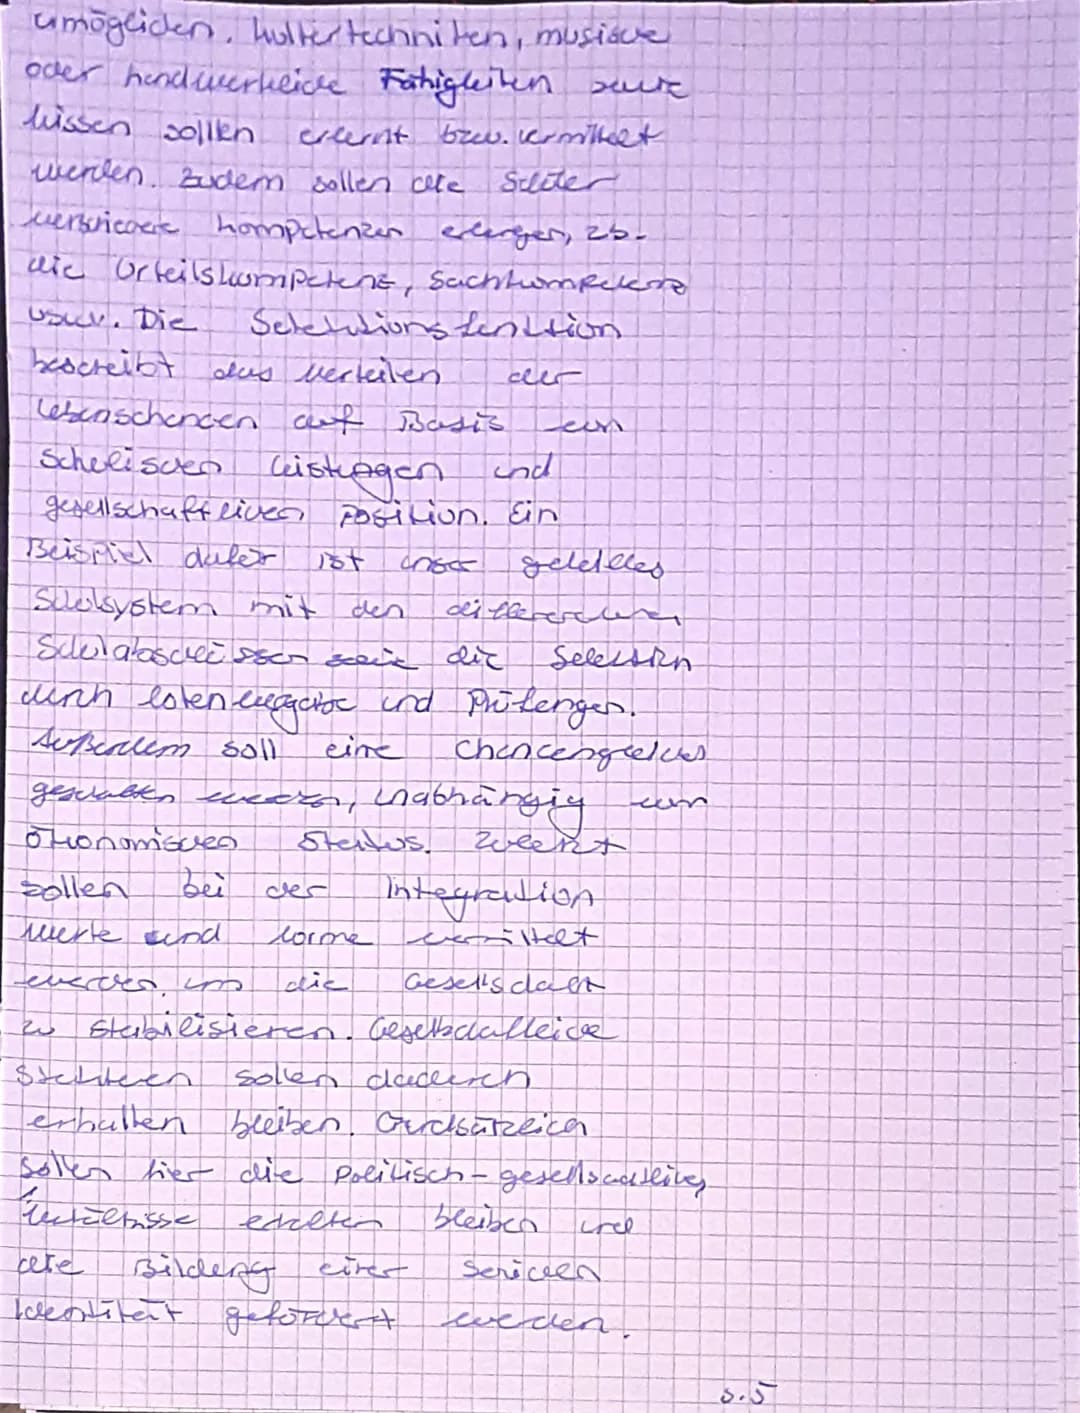 ermöglichen. Kulturtechniken, musische
oder handwerkliche Fähigkeiten sowie
Wissen sollen erlernt bzw. vermittelt
werden. Zudem sollen die Schüler
verschiedene Kompetenzen erlangen, z.b.
die Urteilskompetenz, Sachkompetenz
usw. Die Selektionsfunktion
beschreibt das Verteilen der
Lebenschancen auf Basis von
schulischen Leistungen und
gesellschaftlichen Position. Ein
Beispiel dafür ist unser
Schulsystem mit den
Schulabschlüssen sowie die Selektion
durch Notenvergabe und Prüfungen.
Außerdem soll eine Chancengleichheit
geschaffen werden, unabhängig vom
ökonomischen Status. Zuletzt
sollen bei der Integration
Werte und Norme vermittelt
werden, um die Gesellschaft
zu stabilisieren. Gesellschaftliche
Strukturen sollen dadurch
erhalten bleiben. Grundsätzlich
sollen hier die politisch-gesellschaftlichen
Verhältnisse erhalten bleiben und
die Bildung einer
Identität gefördert werden.
S.5